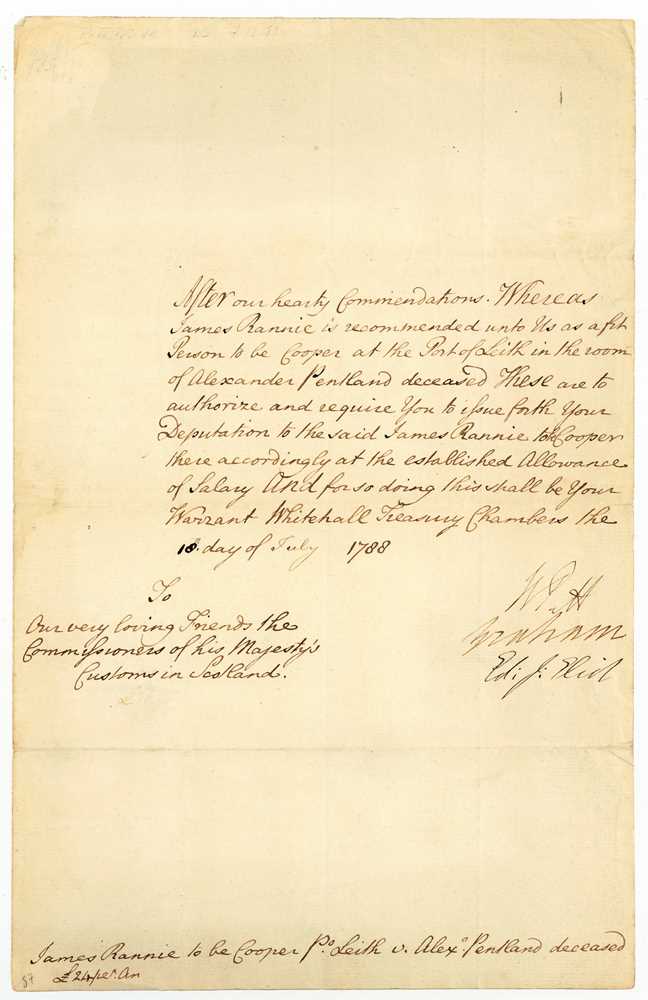 After our hearty Commendations. Whereas
James Rannie is recommended unto Us as a fit
Person to be Cooper at the Port of Leith in the room
of Alexander Pentland deceased These are to
authorize and require You to issue forth Your
Deputation to the said James Rannie to be Cooper
there accordingly at the established Allowance
of Salary And for so doing this shall be Your
Warrant Whitehall Treasury Chambers the
18. day of July 1788
To
Our very loving Friends the
Commissioners of his Majesty's
Customs in Scotland.
W Pitt
Graham
Ed: J: Eliot
James Rannie to be Cooper Po. Leith v. Alexr. Pentland deceased
£24 per. An